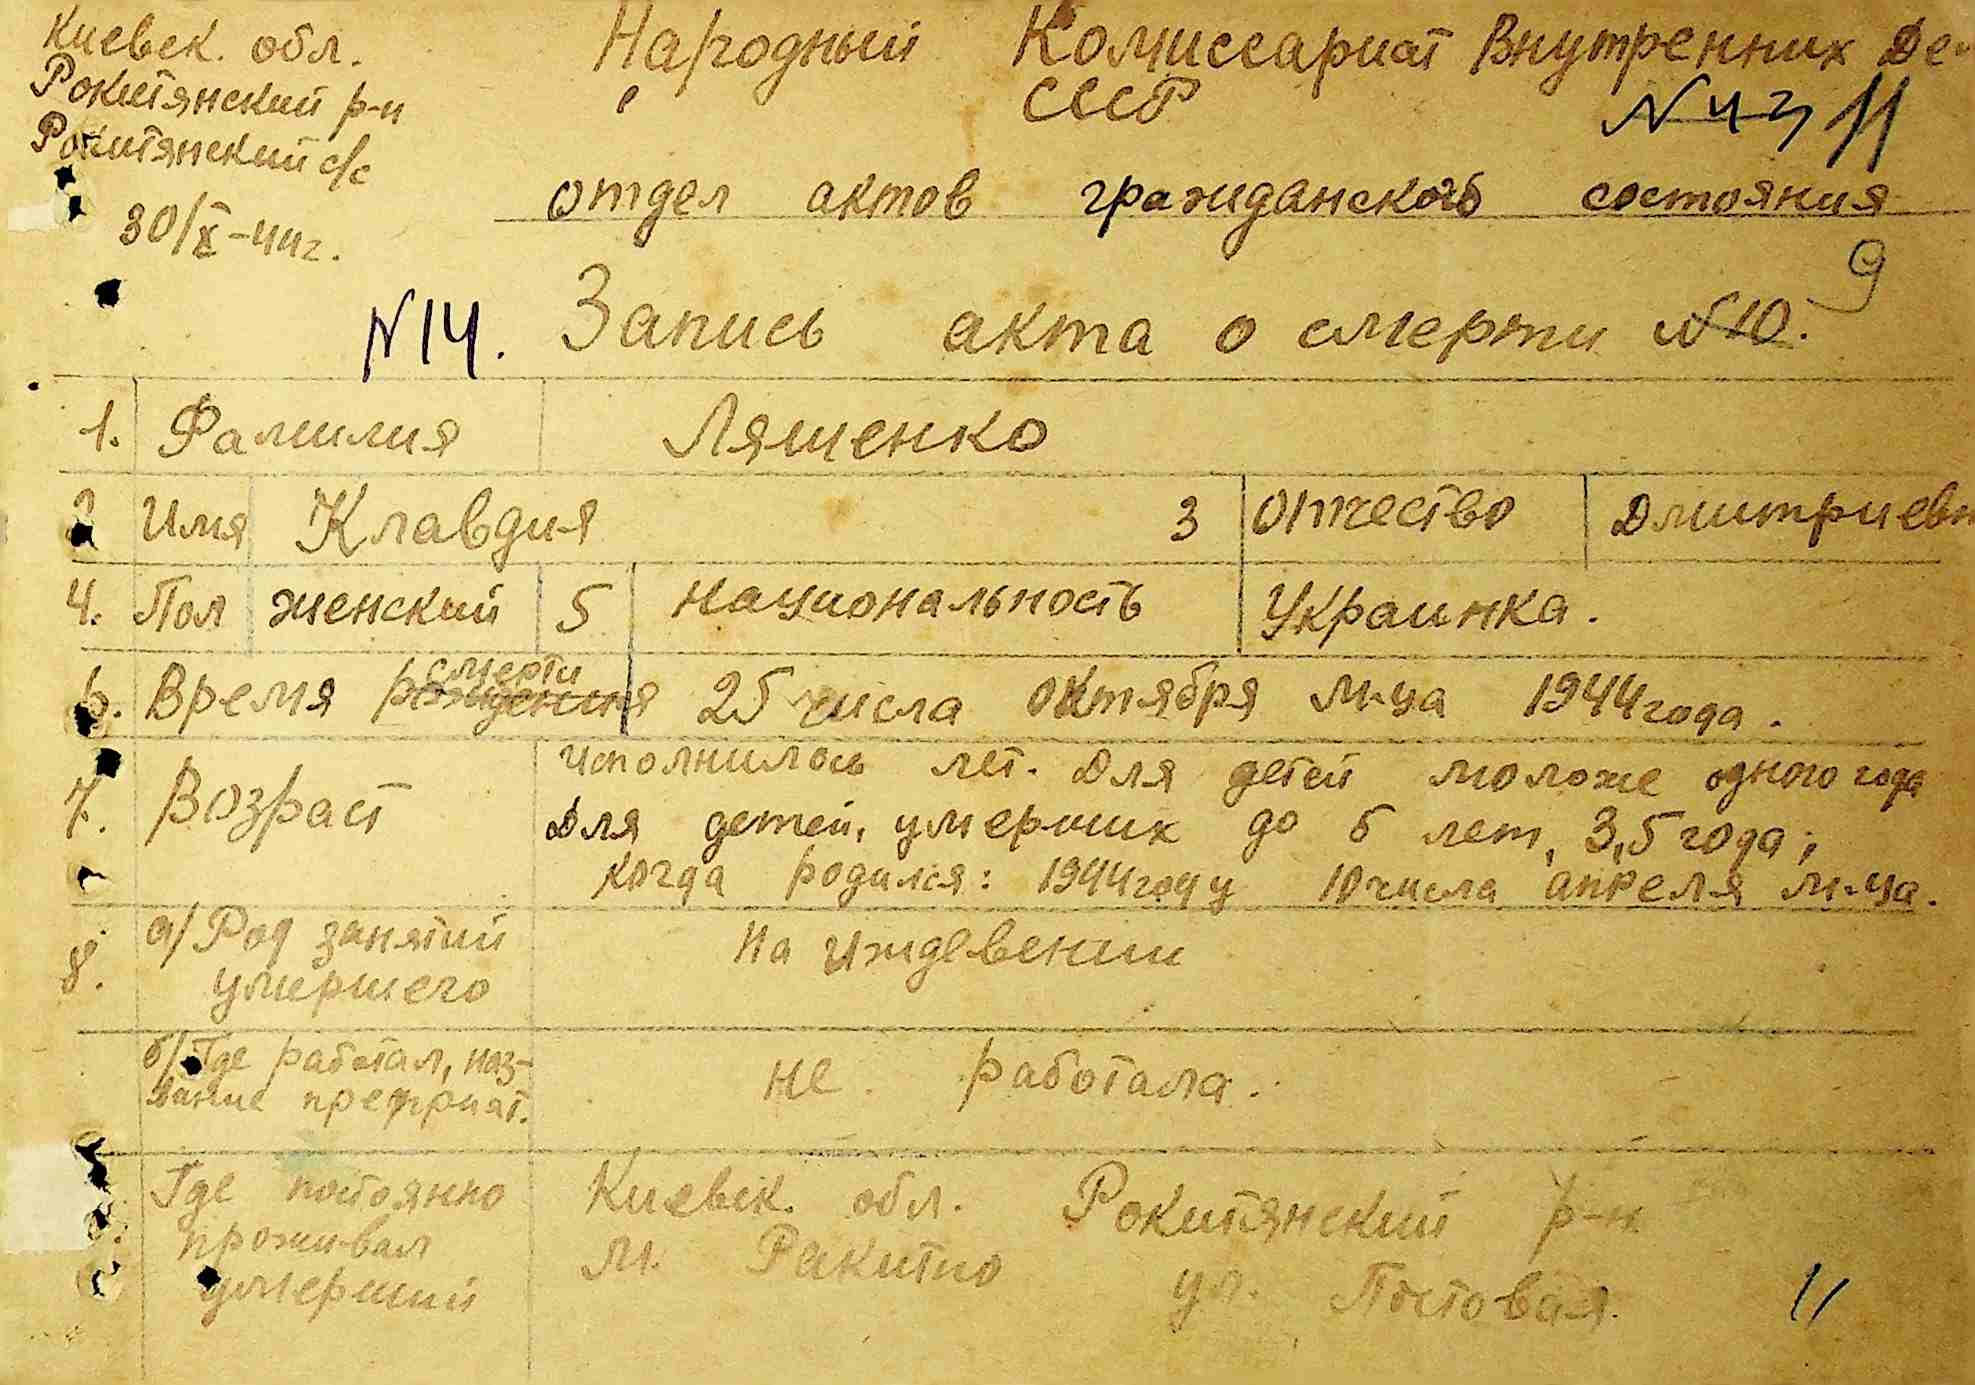 Киевск. обл.
Рокитянский р-н
Рокитянский с/с
30/X-44г.
Народный Комиссариат Внутренних Де
СССР
N 43 11
отдел актов гражданского состояния
9
N14. Запись акта о смерти N10.
1. Фамилия Ляшенко
2 Имя Клавдия 3 Отчество Дмитриевн
4. Пол женский 5 Национальность Украинка.
смерти
6. Время рождения 25 числа октября м-ца 1944 года.
7. Возраст
исполнилось лет. Для детей моложе одного года
Для детей, умерших до 5 лет, 3,5 года;
когда родился: 1944 году 10 числа апреля м-ца.
8. а/ Род занятий
умершего
на иждевении
б/ Где работал, наз-
вание предприят.
не работала.
Где постоянно
проживал
умерший
Киевск. обл. Рокитянский р-н
м. Ракитно ул. Постовая.
11